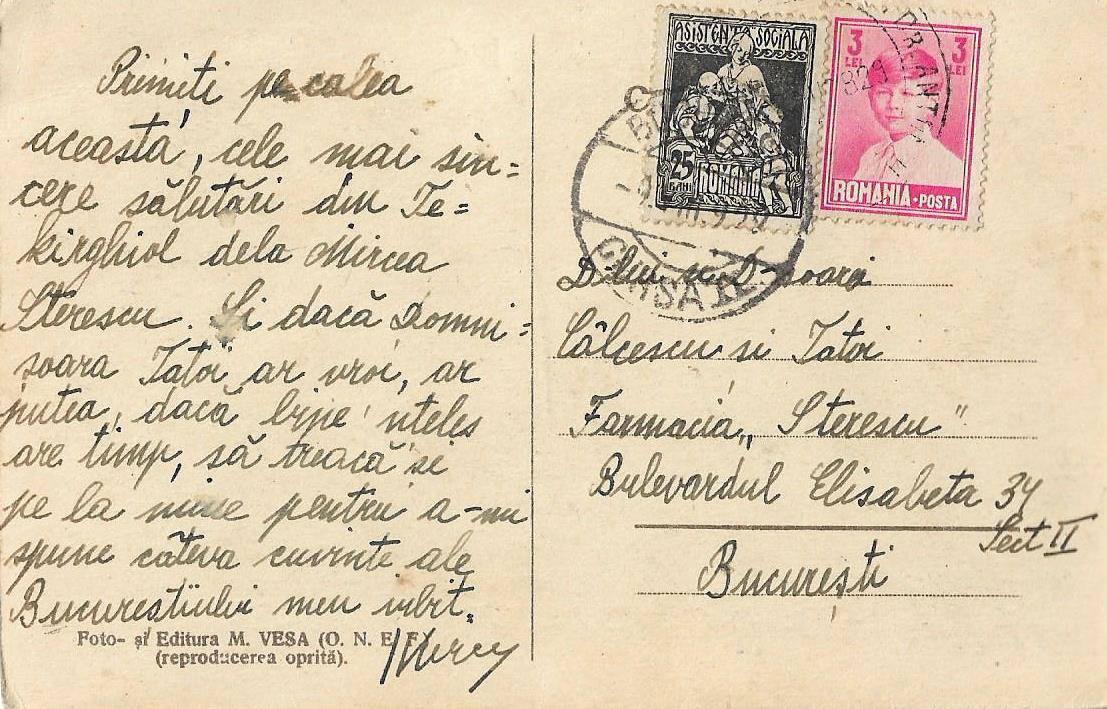 Primiti pe calea
aceasta, cele mai sin=
cere sălutări din Te=
kirghiol dela Mircea
Sterescu. Și dacă Domni=
soara Tatoi ar vroi, ar
putea, dacă bine 'nteles
are timp, să treacă si
pe la mine pentru a-mi
spune câteva cuvinte ale
Bucurestiului meu iubit.
Foto- și Editura M. VESA (O. N. E. F.)
(reproducerea oprită).
ASISTENȚA SOCIALA
25
BANI
ROMANIA
3
LEI
3
LEI
ROMANIA·POSTA
D-lui si D-soarei
Câlcescu si Tatoi
Farmacia „Sterescu"
Bulevardul Elisabeta 34
Sect II
București